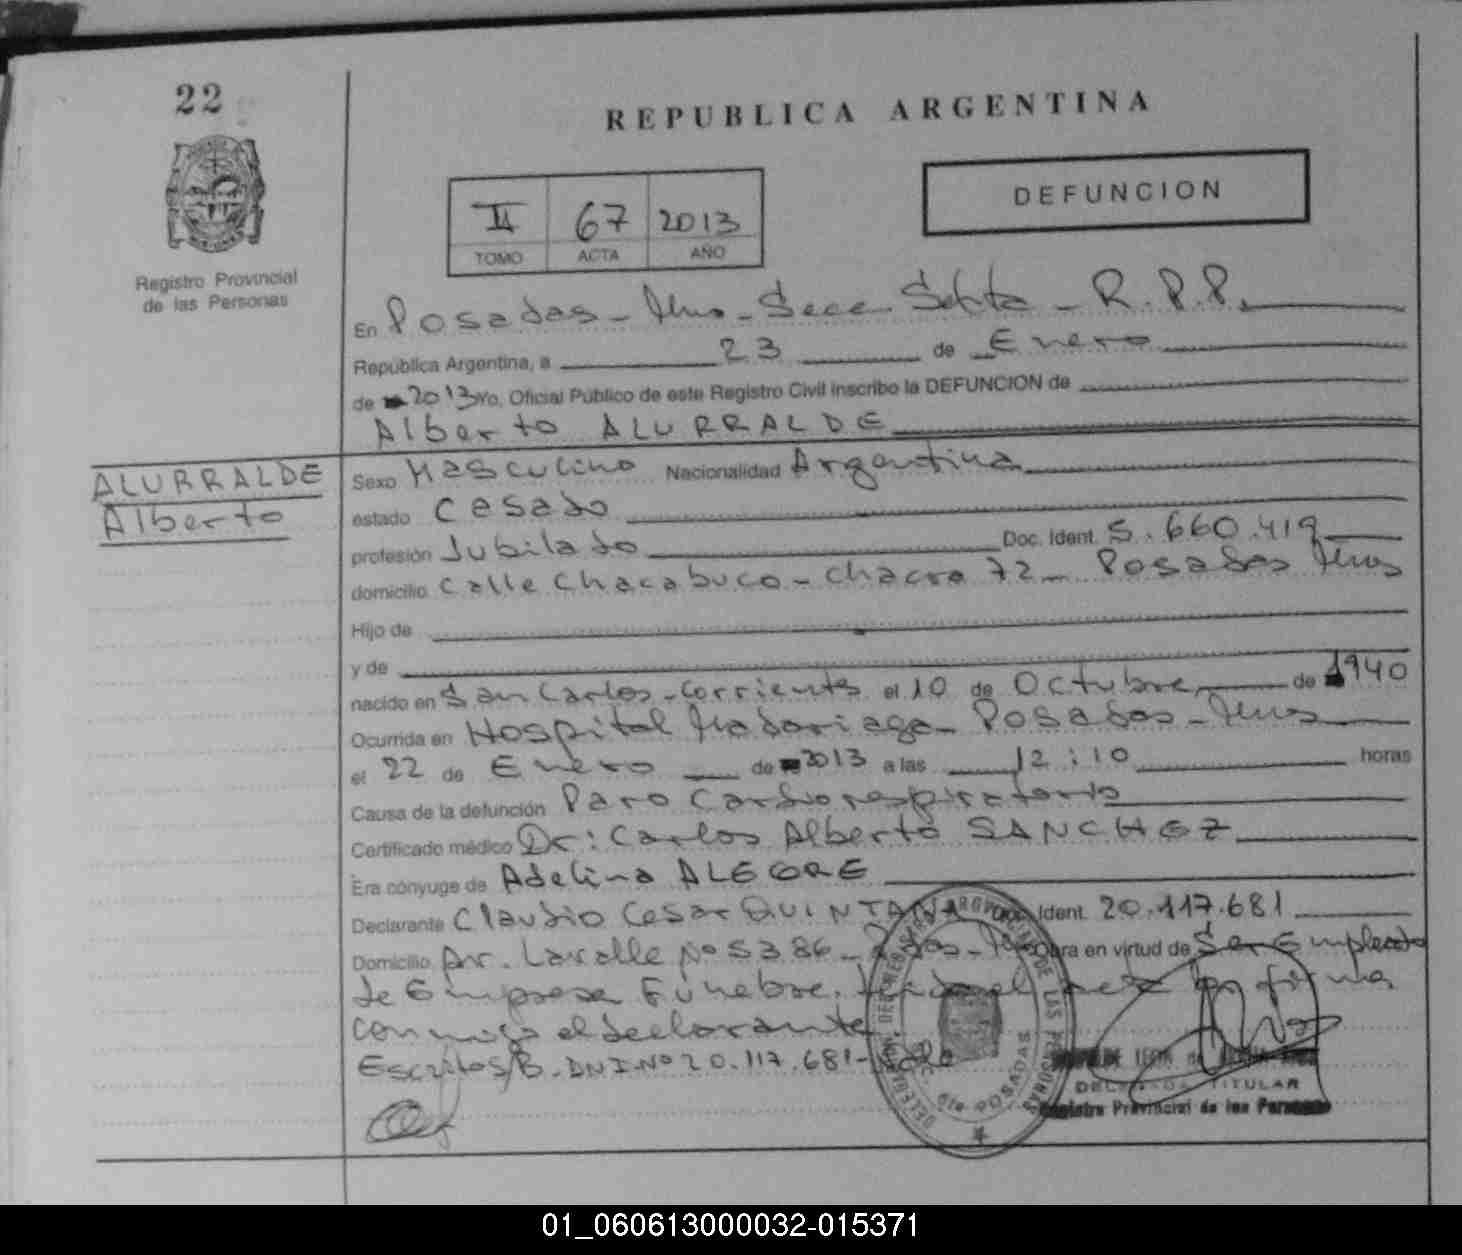 22
REPUBLICA ARGENTINA
DEFUNCION
II 67 2013
TOMO ACTA AÑO
Registro Provincial
de las Personas
En Posadas - Mnes - Secc. Sexta - R.P.P.
República Argentina, a 23 de Enero
de 2013 Yo, Oficial Público de este Registro Civil inscribo la DEFUNCION de
Alberto ALURRALDE
ALURRALDE
Alberto
Sexo Masculino Nacionalidad Argentina
estado Casado
profesión Jubilado Doc. Ident. 5.660.419
domicilio Calle Chacabuco - Chacra 72 - Posadas Mnes
Hijo de
y de
nacido en San Carlos - Corrientes el 10 de Octubre de 1940
Ocurrida en Hospital Madariaga - Posadas - Mnes
el 22 de Enero de 2013 a las 12:10 horas
Causa de la defunción Paro Cardiorespiratorio
Certificado médico Dr: Carlos Alberto SANCHEZ
Era cónyuge de Adelina ALEGRE
Declarante Claudio Cesar QUINTANA Doc. Ident. 20.117.681
Domicilio Av. Lavalle Nº 5386 - Obra en virtud de Ser Empleado
de Empresa Fúnebre. el acta firma
conmigo el declarante
Escritos/B. DNI Nº 20.117.681 - Vale
DELEGADA TITULAR
Registro Provincial de las Personas
POSADAS
01_060613000032-015371